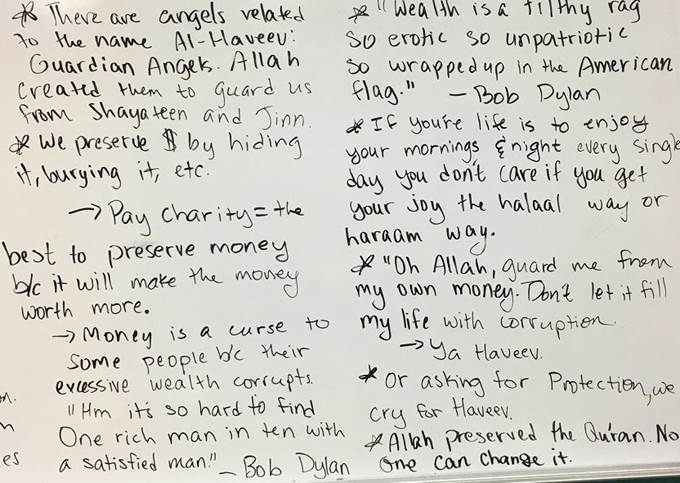 * There are angels related
to the name Al-Haveev:
Guardian Angels. Allah
created them to guard us
from Shayateen and Jinn.
* We preserve $ by hiding
it, burying it, etc.
→ Pay charity = the
best to preserve money
b/c it will make the money
worth more.
→ Money is a curse to
some people b/c their
excessive wealth corrupts.
"Hm it's so hard to find
One rich man in ten with
a satisfied man." - Bob Dylan
n.
n
es
* "Wealth is a filthy rag
So erotic so unpatriotic
So wrapped up in the American
flag." - Bob Dylan
* If you're life is to enjoy
your mornings & night every single
day you don't care if you get
your joy the halaal way or
haraam way.
* "Oh Allah, guard me from
my own money. Don't let it fill
my life with corruption.
→ Ya Haveev.
* Or asking for Protection, we
cry for Haveev.
* Allah preserved the Qur'an. No
One can change it.